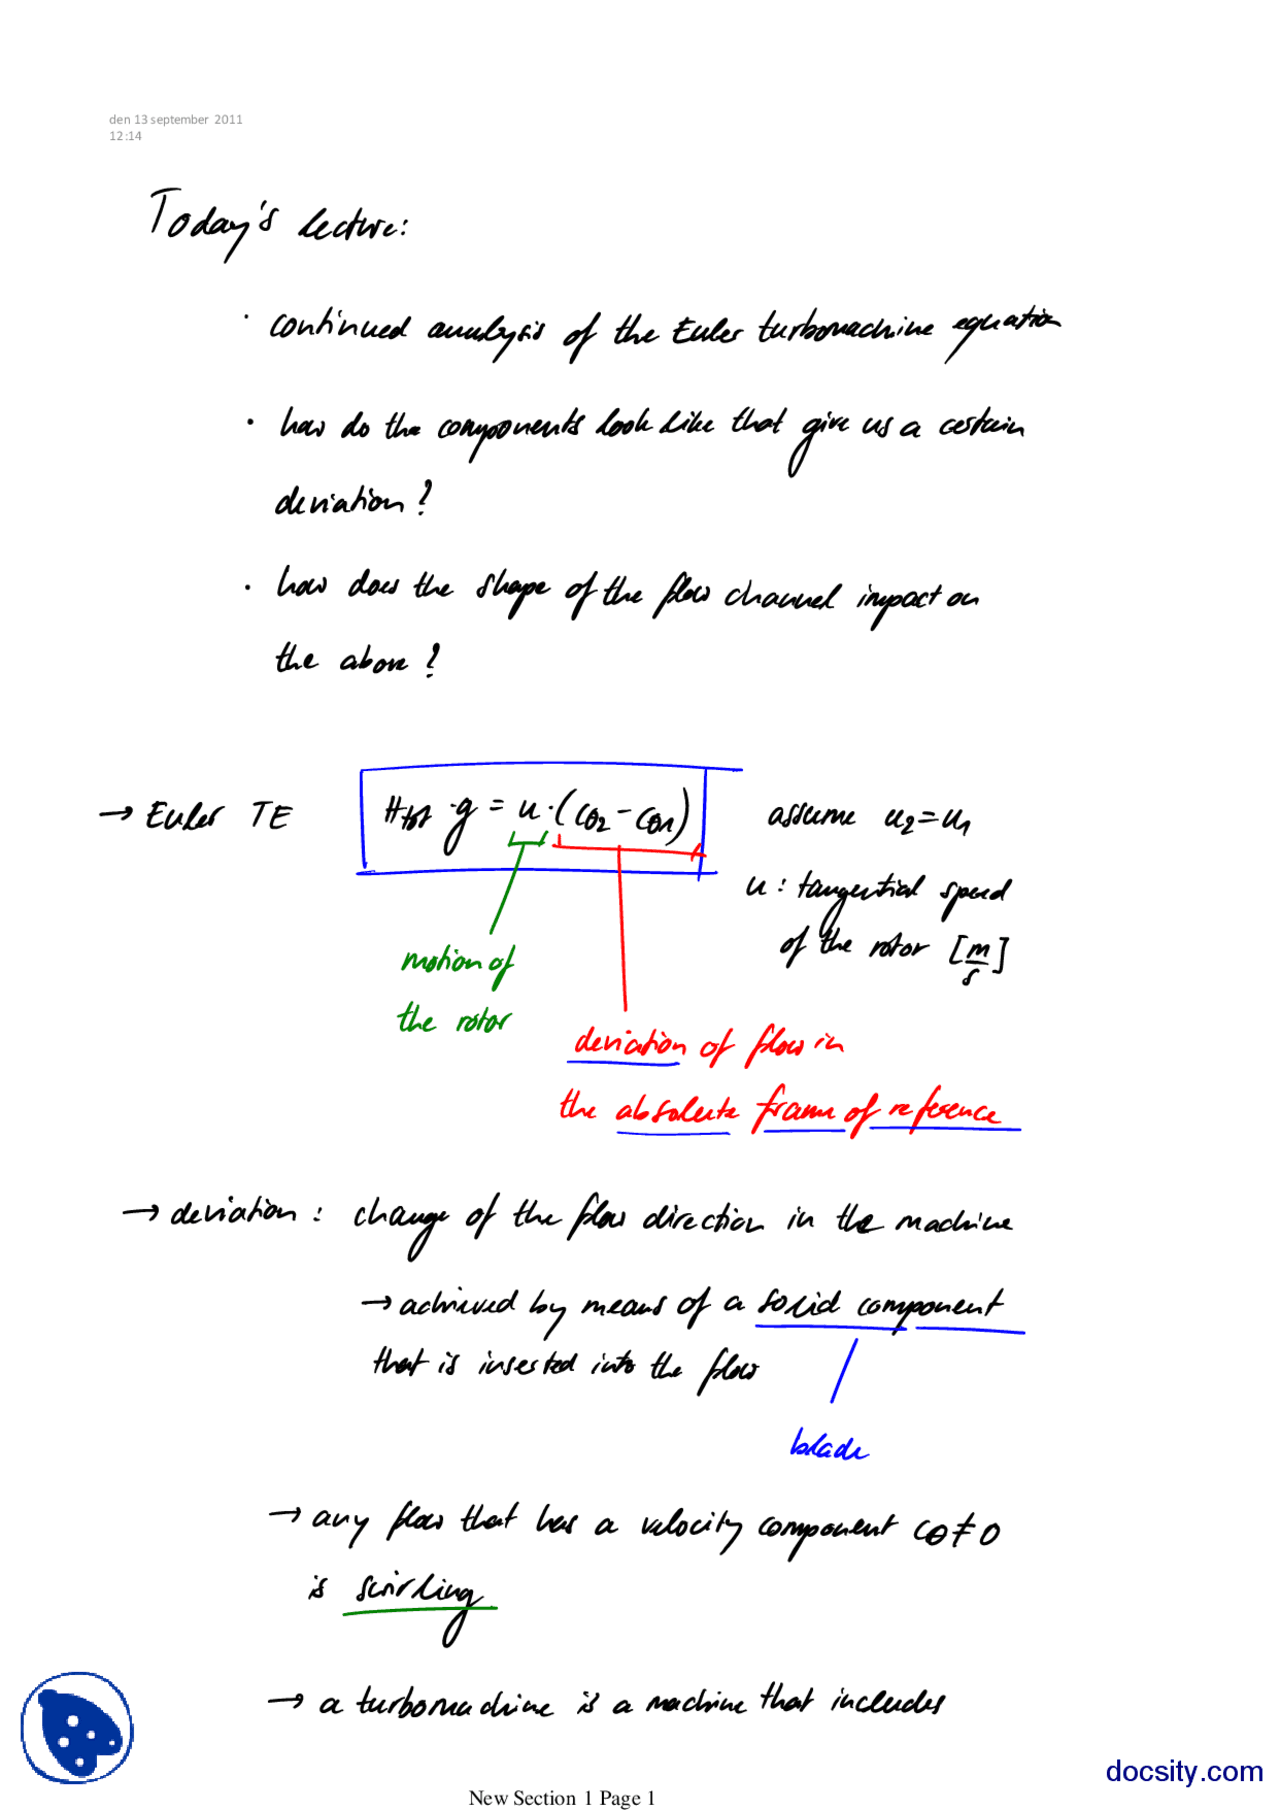 den 13 september 2011
12:14
Today's lecture:
· continued analysis of the Euler turbomachine equation
· how do the components look like that give us a certain
deviation?
· how does the shape of the flow channel impact on
the above?
→ Euler TE Htot · g = u · (cθ2 - cθ1) assume u2 = u1
u : tangential speed
of the rotor [m/s]
motion of
the rotor
deviation of flow in
the absolute frame of reference
→ deviation : change of the flow direction in the machine
→ achieved by means of a solid component
that is inserted into the flow
blade
→ any flow that has a velocity component cθ ≠ 0
is swirling
→ a turbomachine is a machine that includes
docsity.com
New Section 1 Page 1